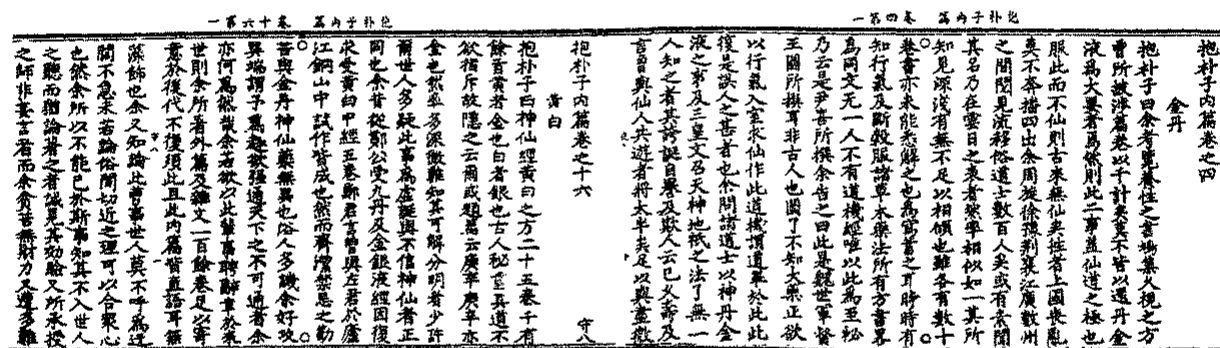 抱朴子內篇 卷四第一
抱朴子內篇卷之四
金丹
抱朴子曰余考覽養性之書鳩集久視之方
曾所披涉篇卷以千計矣莫不皆以還丹金
液為大要者焉然則此二事蓋仙道之極也
服此而不仙則古來無仙矣往者上國喪亂
莫不奔播四出余周旋徐豫荊襄江廣數州
之間閱見流移俗道士數百人矣或有素聞
其名乃在雲日之表者然率相似如一其所
知見深淺有無不足以相傾也雖各有數十
卷書亦未能悉解之也為寫蓄之耳時時有
知行氣及斷穀服諸草木藥法所有方書略
為同文无一人不有道機經唯以此為至秘
乃云是尹喜所撰余告之曰此是魏世軍督
王圖所撰耳非古人也圖了不知大藥正欲
以行氣入室求仙作此道機謂道畢於此此
復是誤人之甚者也余問諸道士以神丹金
液之事及三皇文召天神地祇之法了無一
人知之者其誇誕自譽及欺人云已久壽及
言曾與仙人共遊者將太半矣足以與盡微
抱朴子內篇 卷十六第一
抱朴子內篇卷之十六 守八
黃白
抱朴子曰神仙經黃白之方二十五卷千有
餘首黃者金也白者銀也古人秘重其道不
欲指斥故隱之云爾或題篇云庚辛庚辛亦
金也然率多深微難知其可解分明者少許
爾世人多疑此事為虛誕與不信神仙者正
同也余昔從鄭公受九丹及金銀液經因復
求受黃白中經五卷鄭君言曾與左君於廬
江銅山中試作皆成也然而齋潔禁忌之勤
苦與金丹神仙藥無異也俗人多譏余好攻
異端謂予為趣欲強通天下之不可通者余
亦何為然哉余若欲以此輩事騁辭章於來
世則余所著外篇及雜文一百餘卷足以寄
意於後代不復須此且此內篇皆直語耳無
藻飾也余又知論此曹事世人莫不呼為迂
闊不急未若論俗間切近之理可以合衆心
也然余所以不能已於斯事知其不入世人
之聽而猶論著之者誠見其効驗又所承授
之師非妄言者而余貧苦無財力又遭多難